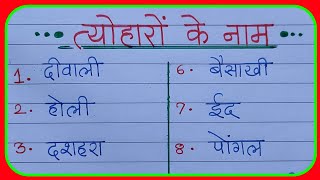 ••• त्योहारों के नाम •••
1. दीवाली
2. होली
3. दशहरा
6. बैसाखी
7. ईद
8. पोंगल